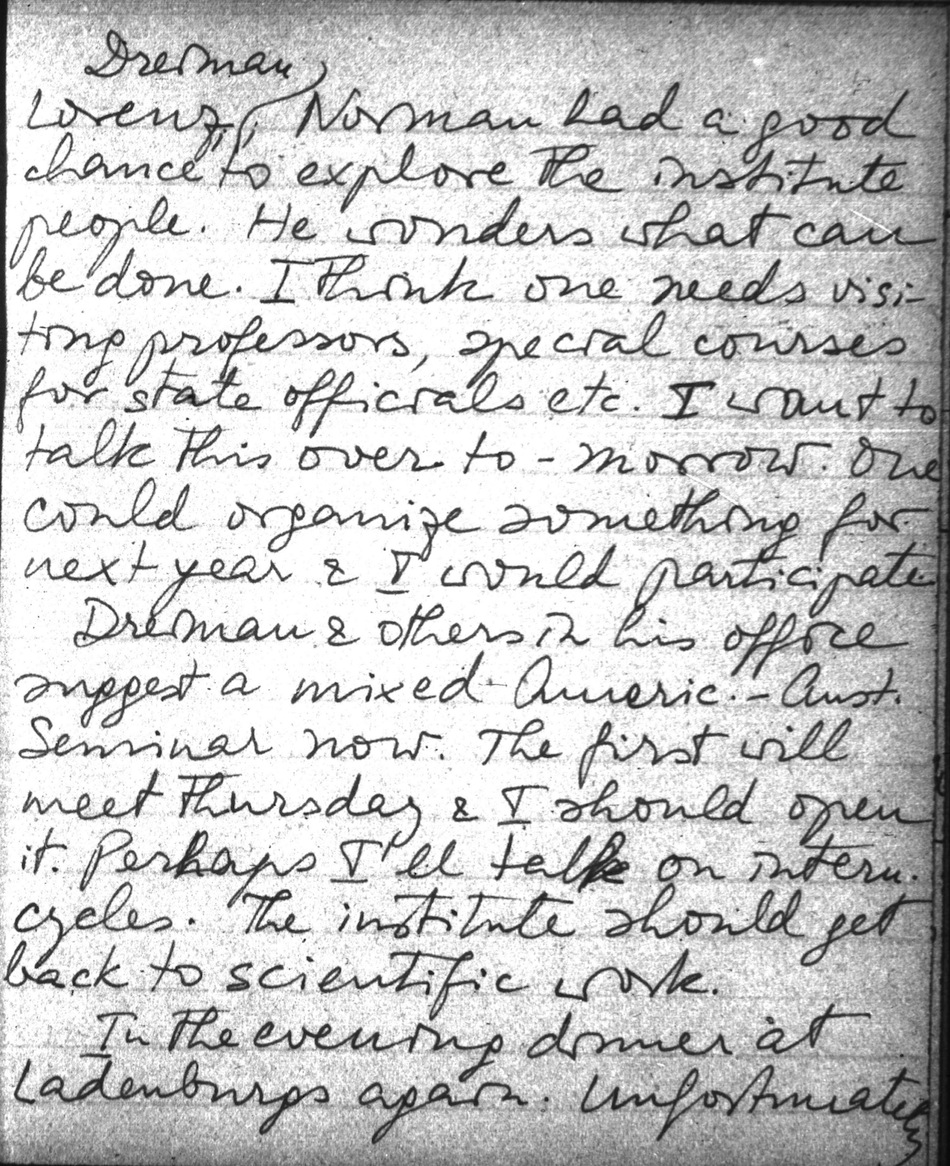 Dreiman,
Lorenz, Norman had a good
chance to explore the institute
people. He wonders what can
be done. I think one needs visi-
ting professors, special courses
for state officials etc. I want to
talk this over to-morrow. One
could organize something for
next year & I would participate
Dreiman & others in his office
suggest a mixed Americ.-Aust.
Seminar now. The first will
meet Thursday & I should open
it. Perhaps I'll talk on intern.
cycles. The institute should get
back to scientific work.
In the evening dinner at
Ladenburgs again. Unfortunately